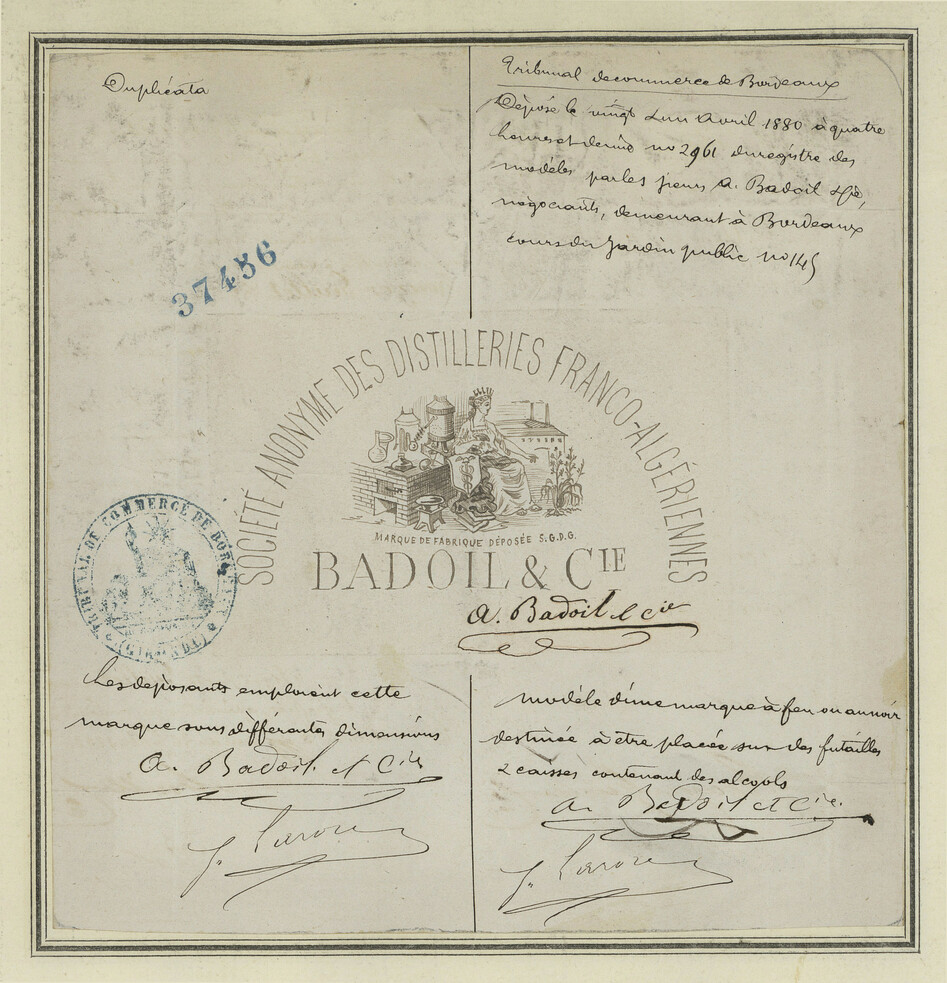 Duplicata
Tribunal de commerce de Bordeaux
Déposé le vingt & un Avril 1880 à quatre
heures et demie no 2961 du registre des
modèles par les sieurs A. Badoil & Cie,
négociants, demeurant à Bordeaux
cours du Jardin public no 145
37456
SOCIÉTÉ ANONYME DES DISTILLERIES FRANCO-ALGÉRIENNES
MARQUE DE FABRIQUE DÉPOSÉE S.G.D.G.
BADOIL & CIE
TRIBUNAL DE COMMERCE DE BORDEAUX
(GIRONDE)
A. Badoil & cie
Les déposants emploient cette
marque sous différentes dimensions
A. Badoil et Cie
modèle d'une marque à feu ou au noir
destinée à être placée sur des futailles
& caisses contenant des alcools
A. Badoil et Cie